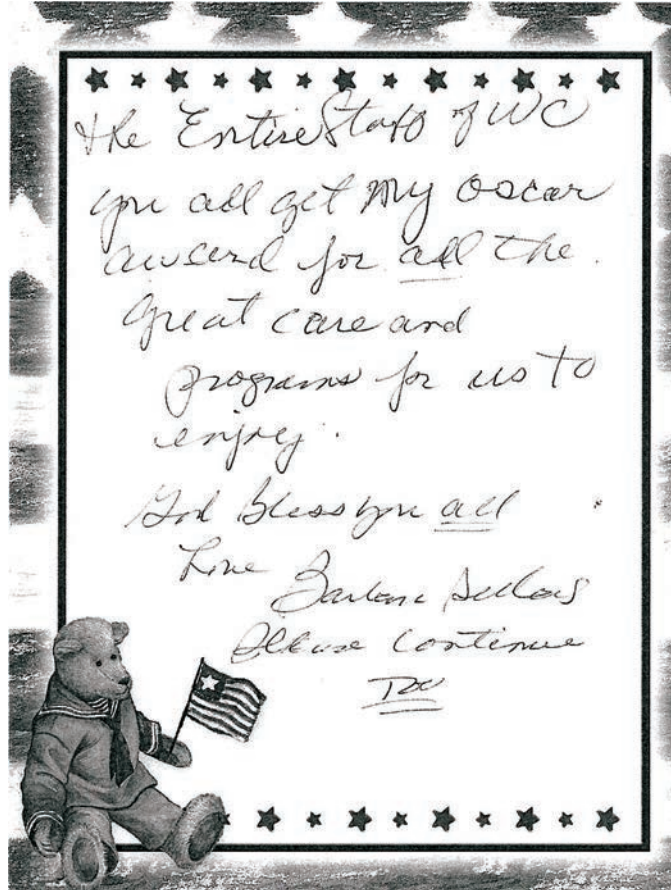 the Entire Staff of WC
you all get My oscar
award for all the
great care and
programs for us to
enjoy.
God Bless you all
Love
Please Continue